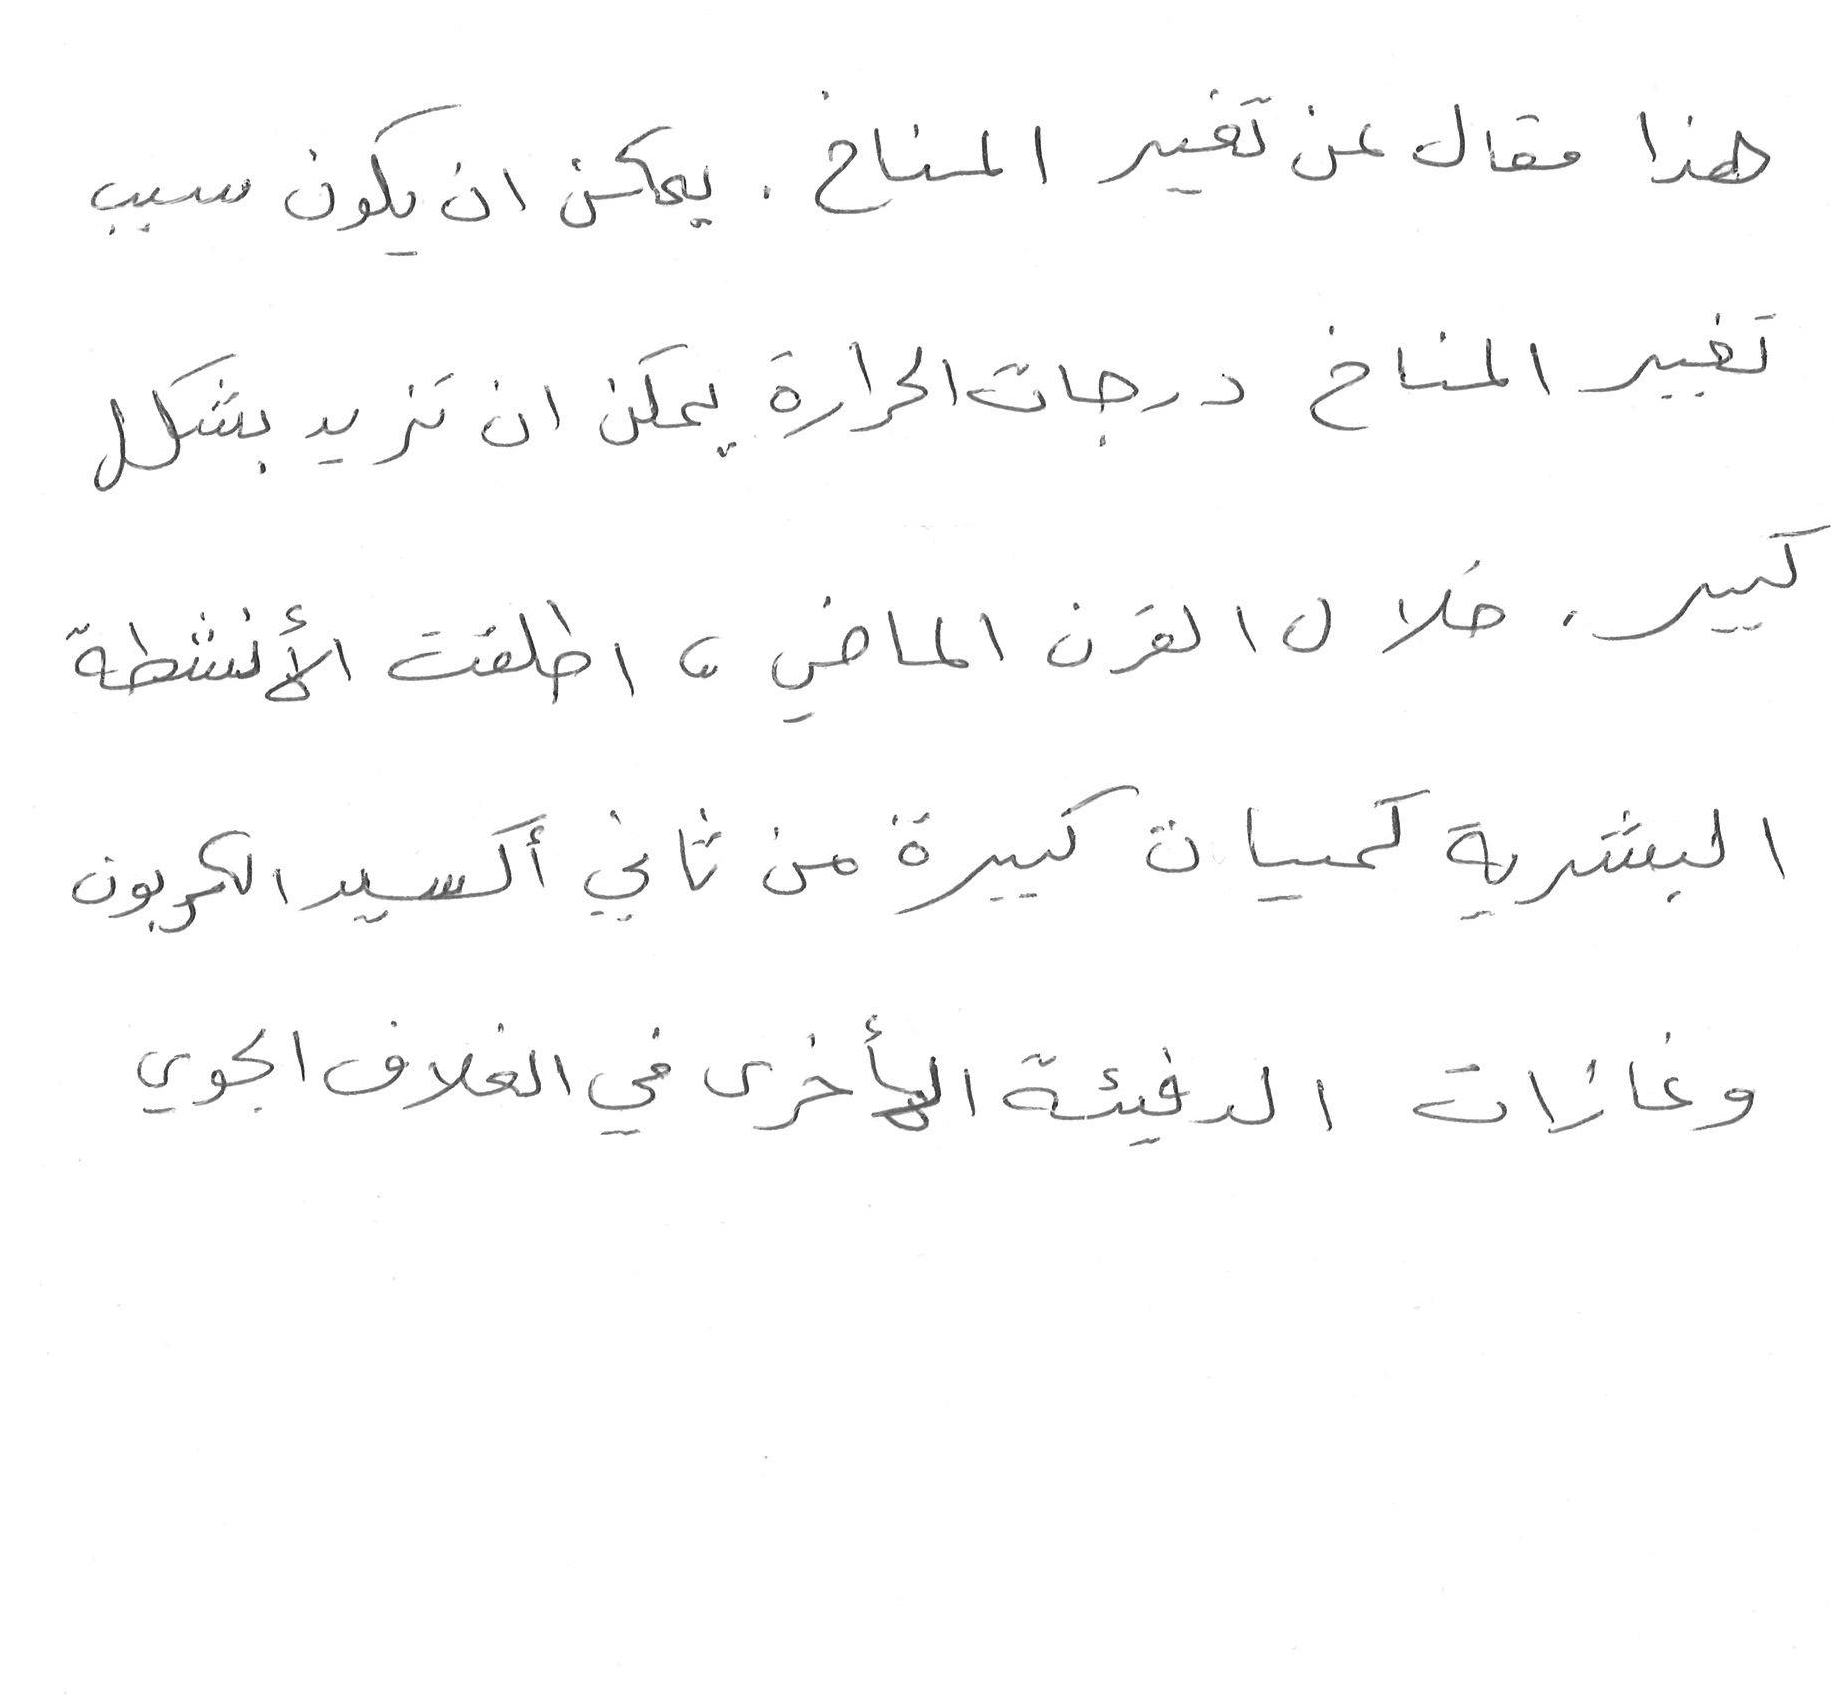 هذا مقال عن تغير المناخ . يمكن ان يكون سبب
تغيير المناخ درجات الحرارة يمكن ان تزيد بشكل
كبير . خلال القرن الماضي ، اطلقت الأنشطة
البشرية كميات كبيرة من ثاني أكسيد الكربون
وغازات الدفيئة الأخرى في الغلاف الجوي